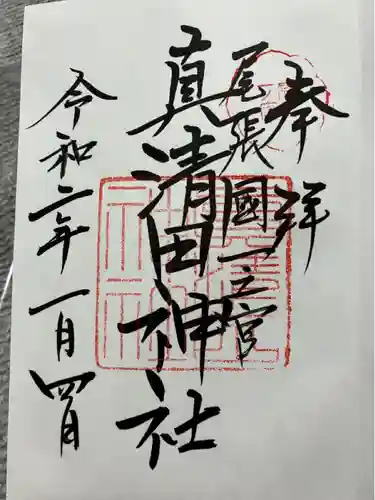 奉拝
尾張國一之宮
真清田神社
令和二年一月四日